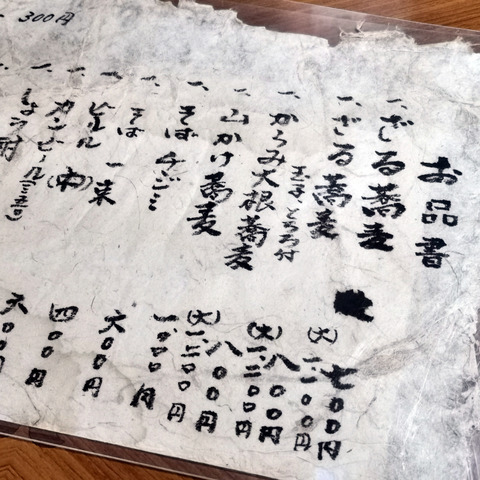 お品書
一、ざる蕎麦
七〇〇円
一、ざる蕎麦
(大)
一、からみ大根蕎麦
玉子とろろ付
八〇〇円
(大)一、二〇〇円
一、山かけ蕎麦
八〇〇円
(大)一、二〇〇円
一、そばチヂミ
一、〇〇〇円
一、そば一束
六〇〇円
一、ビール(中)
四〇〇円
一、カンビール
六〇〇円
しょう酎
300円